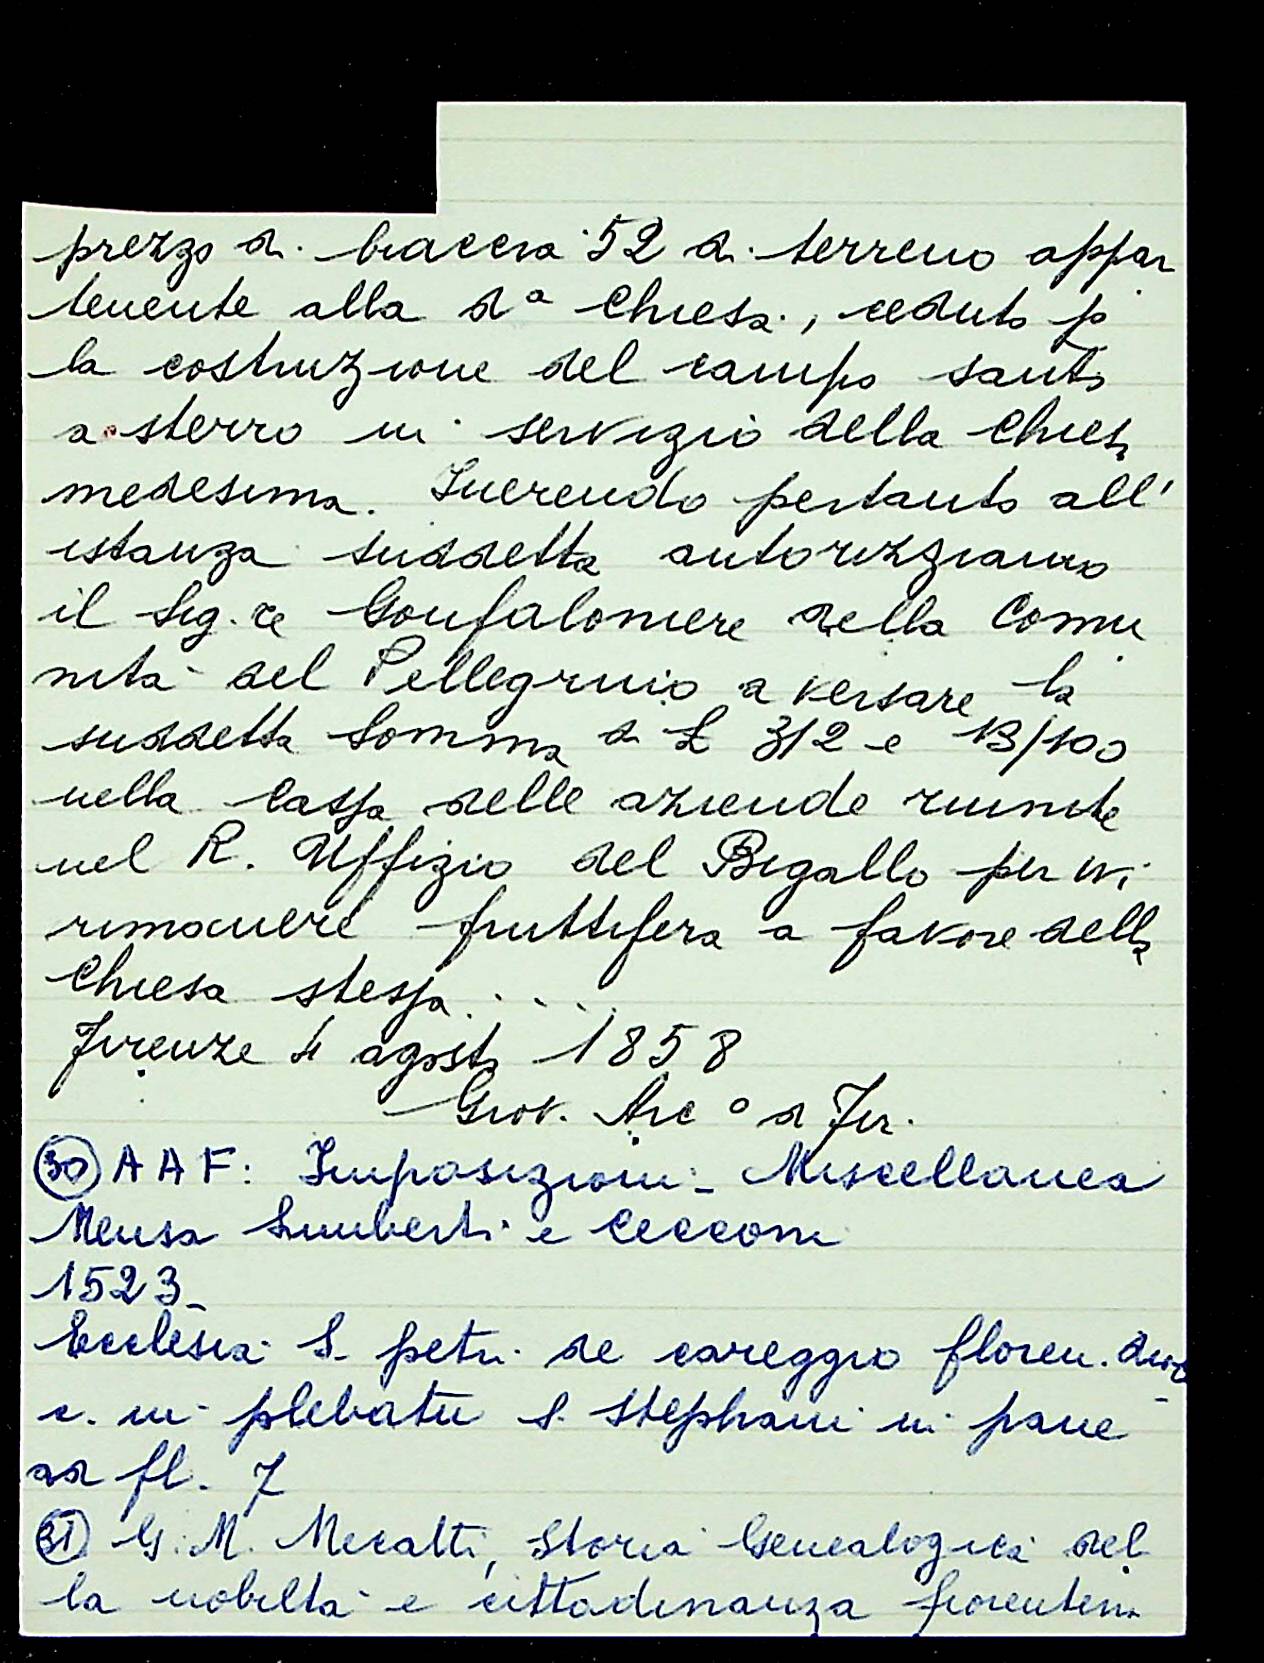 prezzo di braccia 52 di terreno appar
tenente alla dª Chiesa, ceduto p
la costruzione del campo santo
a sterro in servizio della Chiesa
medesima. Inerendo pertanto all'
istanza suddetta autorizziamo
il Sig.re Gonfaloniere della Comu
nità del Pellegrino a versare la
suddetta somma di £ 312 e 13/100
nella Cassa delle aziende riunite
nel R. Uffizio del Bigallo per ivi
rimanere fruttifera a favore della
Chiesa stessa ....
Firenze 4 agosto 1858
Giov. Arc° di Fir.
30 AAF: Imposizioni - Miscellanea
Mensa Limberti e Cecconi
1523_
Ecclesia S. petri de careggio floren. dioc
e. in plebatu S. Stephani in pane
ad fl. 7
31 G. M. Mecatti, Storia Genealogica del
la nobiltà e cittadinanza fiorentina